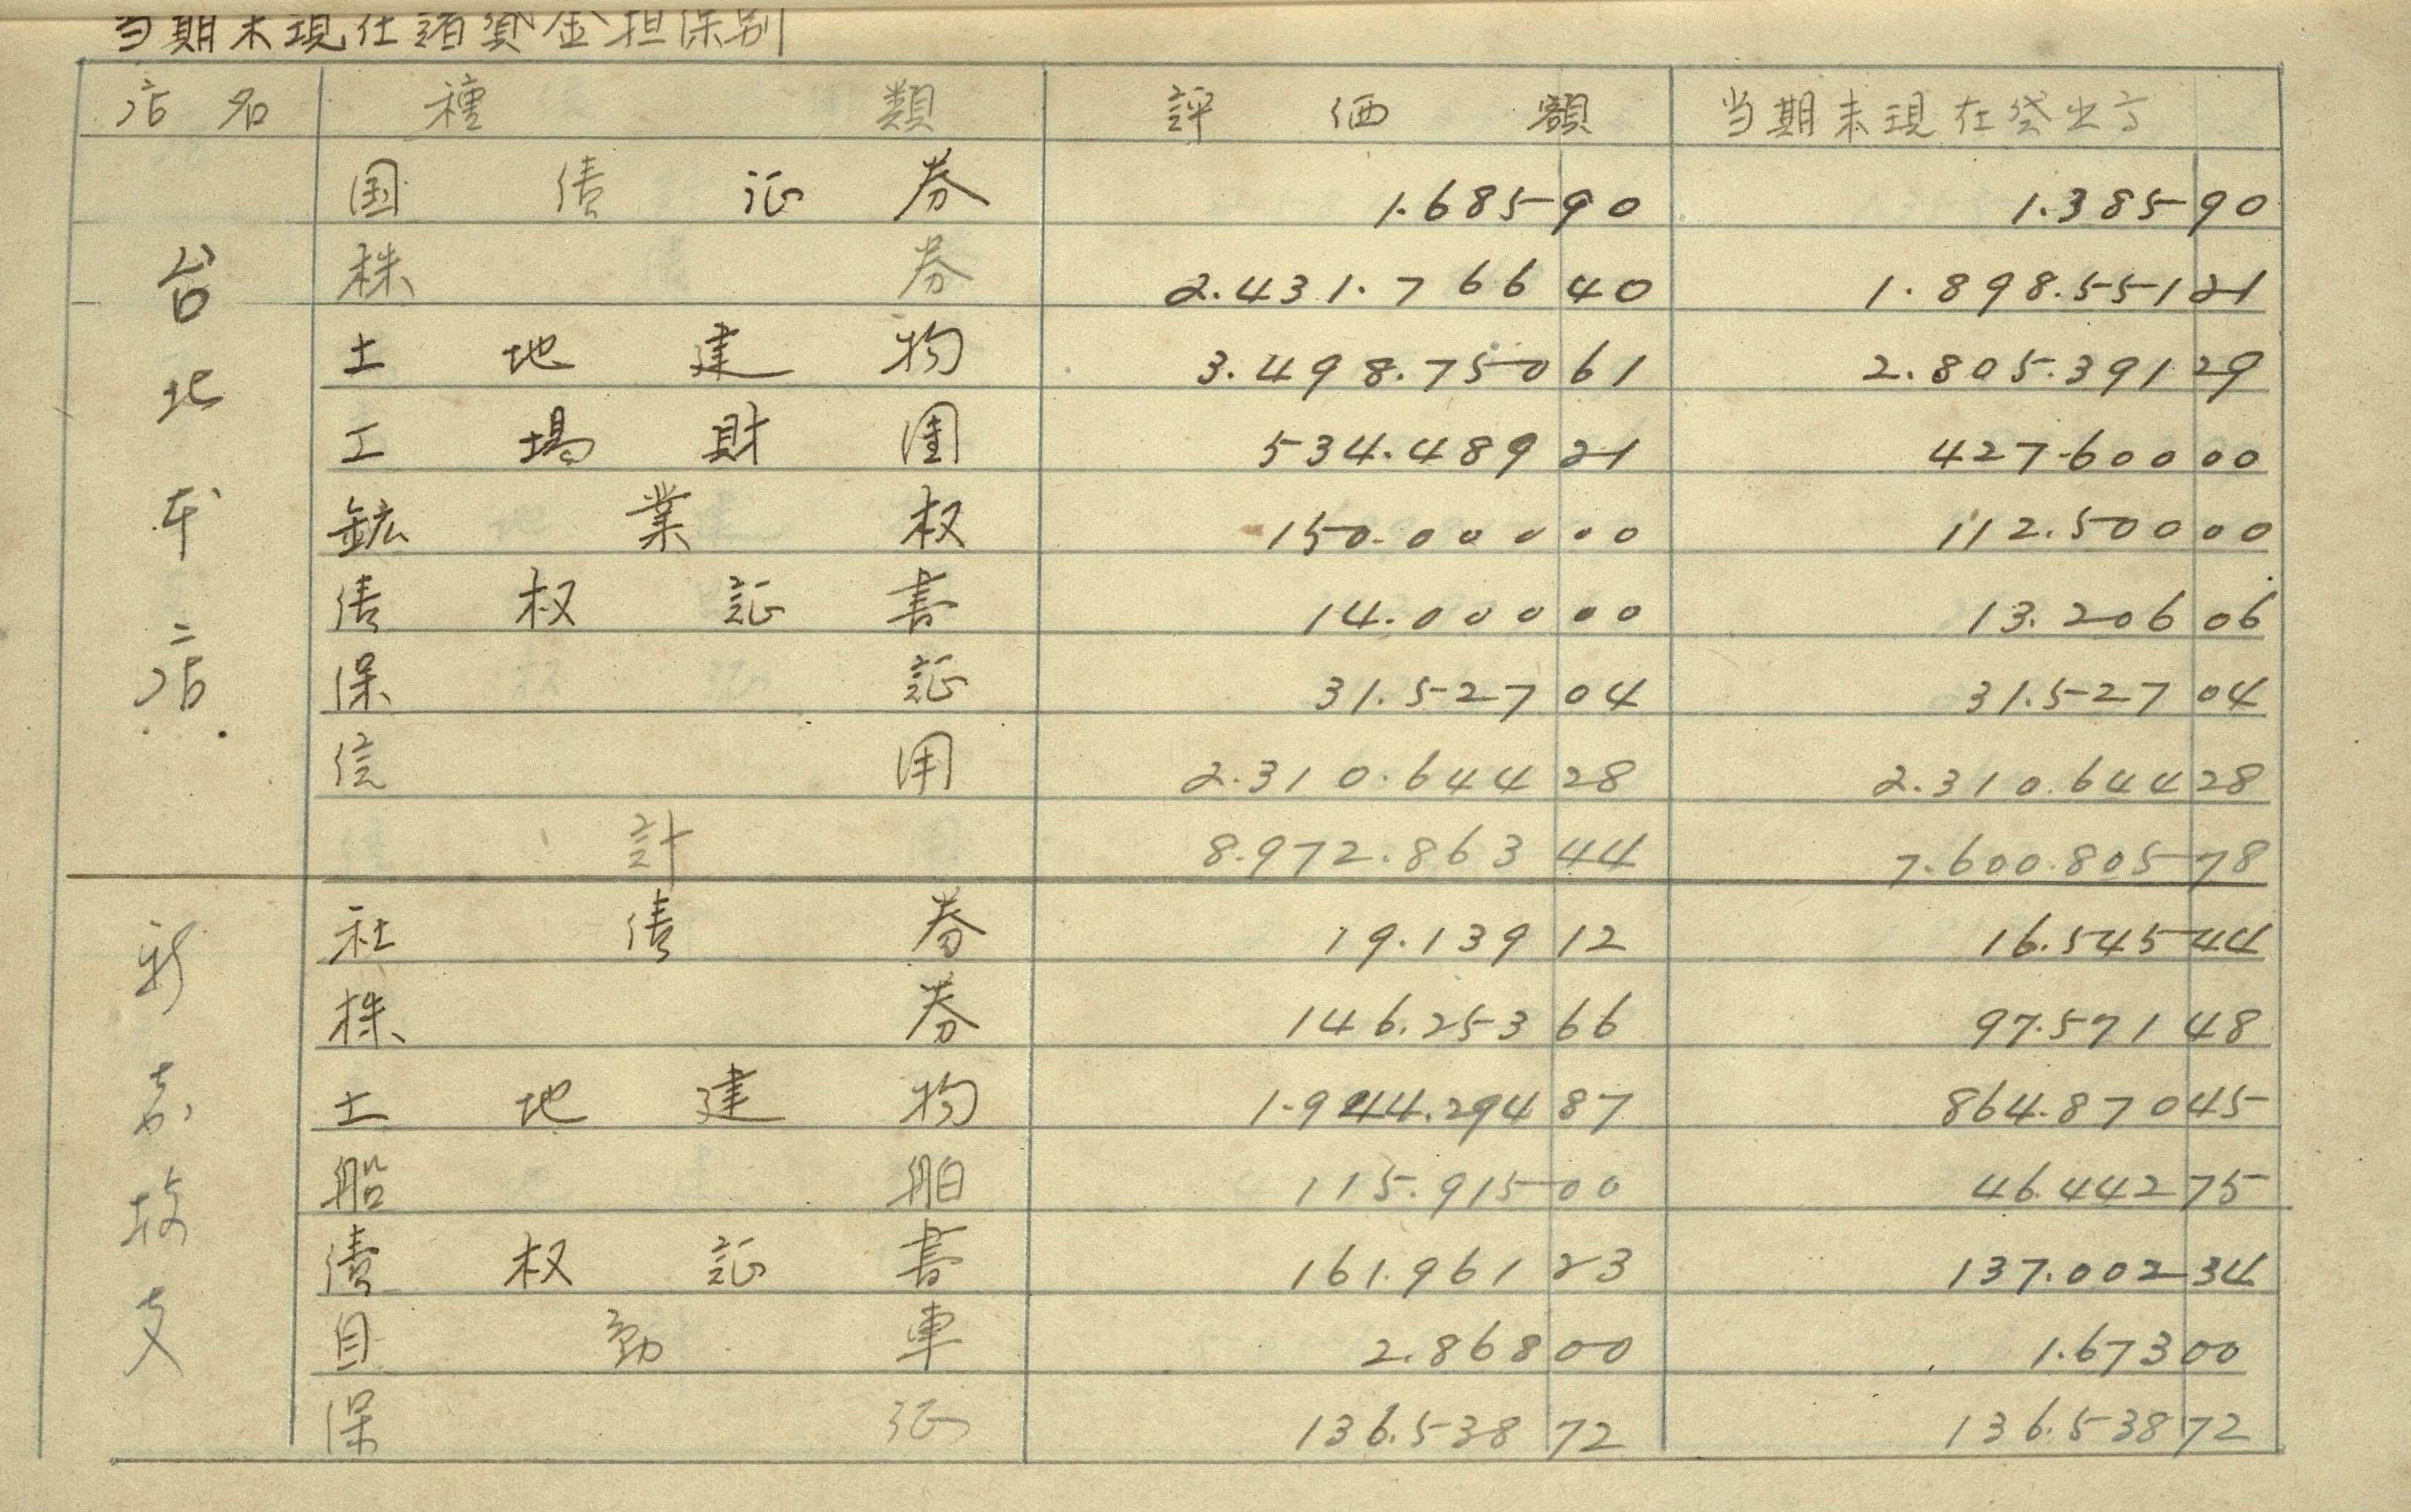 当期末現在諸貸金担保別
店名 種類 評価額 当期末現在貸出高
台北本店
国債証券 1.685 90 1.385 90
株券 2.431.766 40 1.898.551 21
土地建物 3.498.750 61 2.805.391 29
工場財団 534.489 21 427.600 00
鉱業权 150.000 00 112.500 00
債权証書 14.000 00 13.206 06
保証 31.527 04 31.527 04
信用 2.310.644 28 2.310.644 28
計 8.972.863 44 7.600.805 78
新高坡支
社債券 19.139 12 16.545 44
株券 146.253 66 97.571 48
土地建物 1.944.294 87 864.870 45
船舶 115.915 00 46.442 75
債权証書 161.961 23 137.002 34
自動車 2.868 00 1.673 00
保証 136.538 72 136.538 72